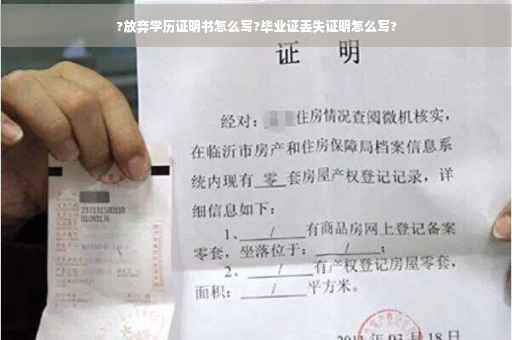 ?放弃学历证明书怎么写?毕业证丢失证明怎么写?
证 明
经对:住房情况查阅微机核实,
在临沂市房产和住房保障局档案信息系
统内现有 零 套房屋产权登记记录,详
细信息如下:
1、 / 有商品房网上登记备案
零套,坐落位于: / ;
2、 / 有产权登记房屋零套,
面积: / 平方米。
03 月 18 日